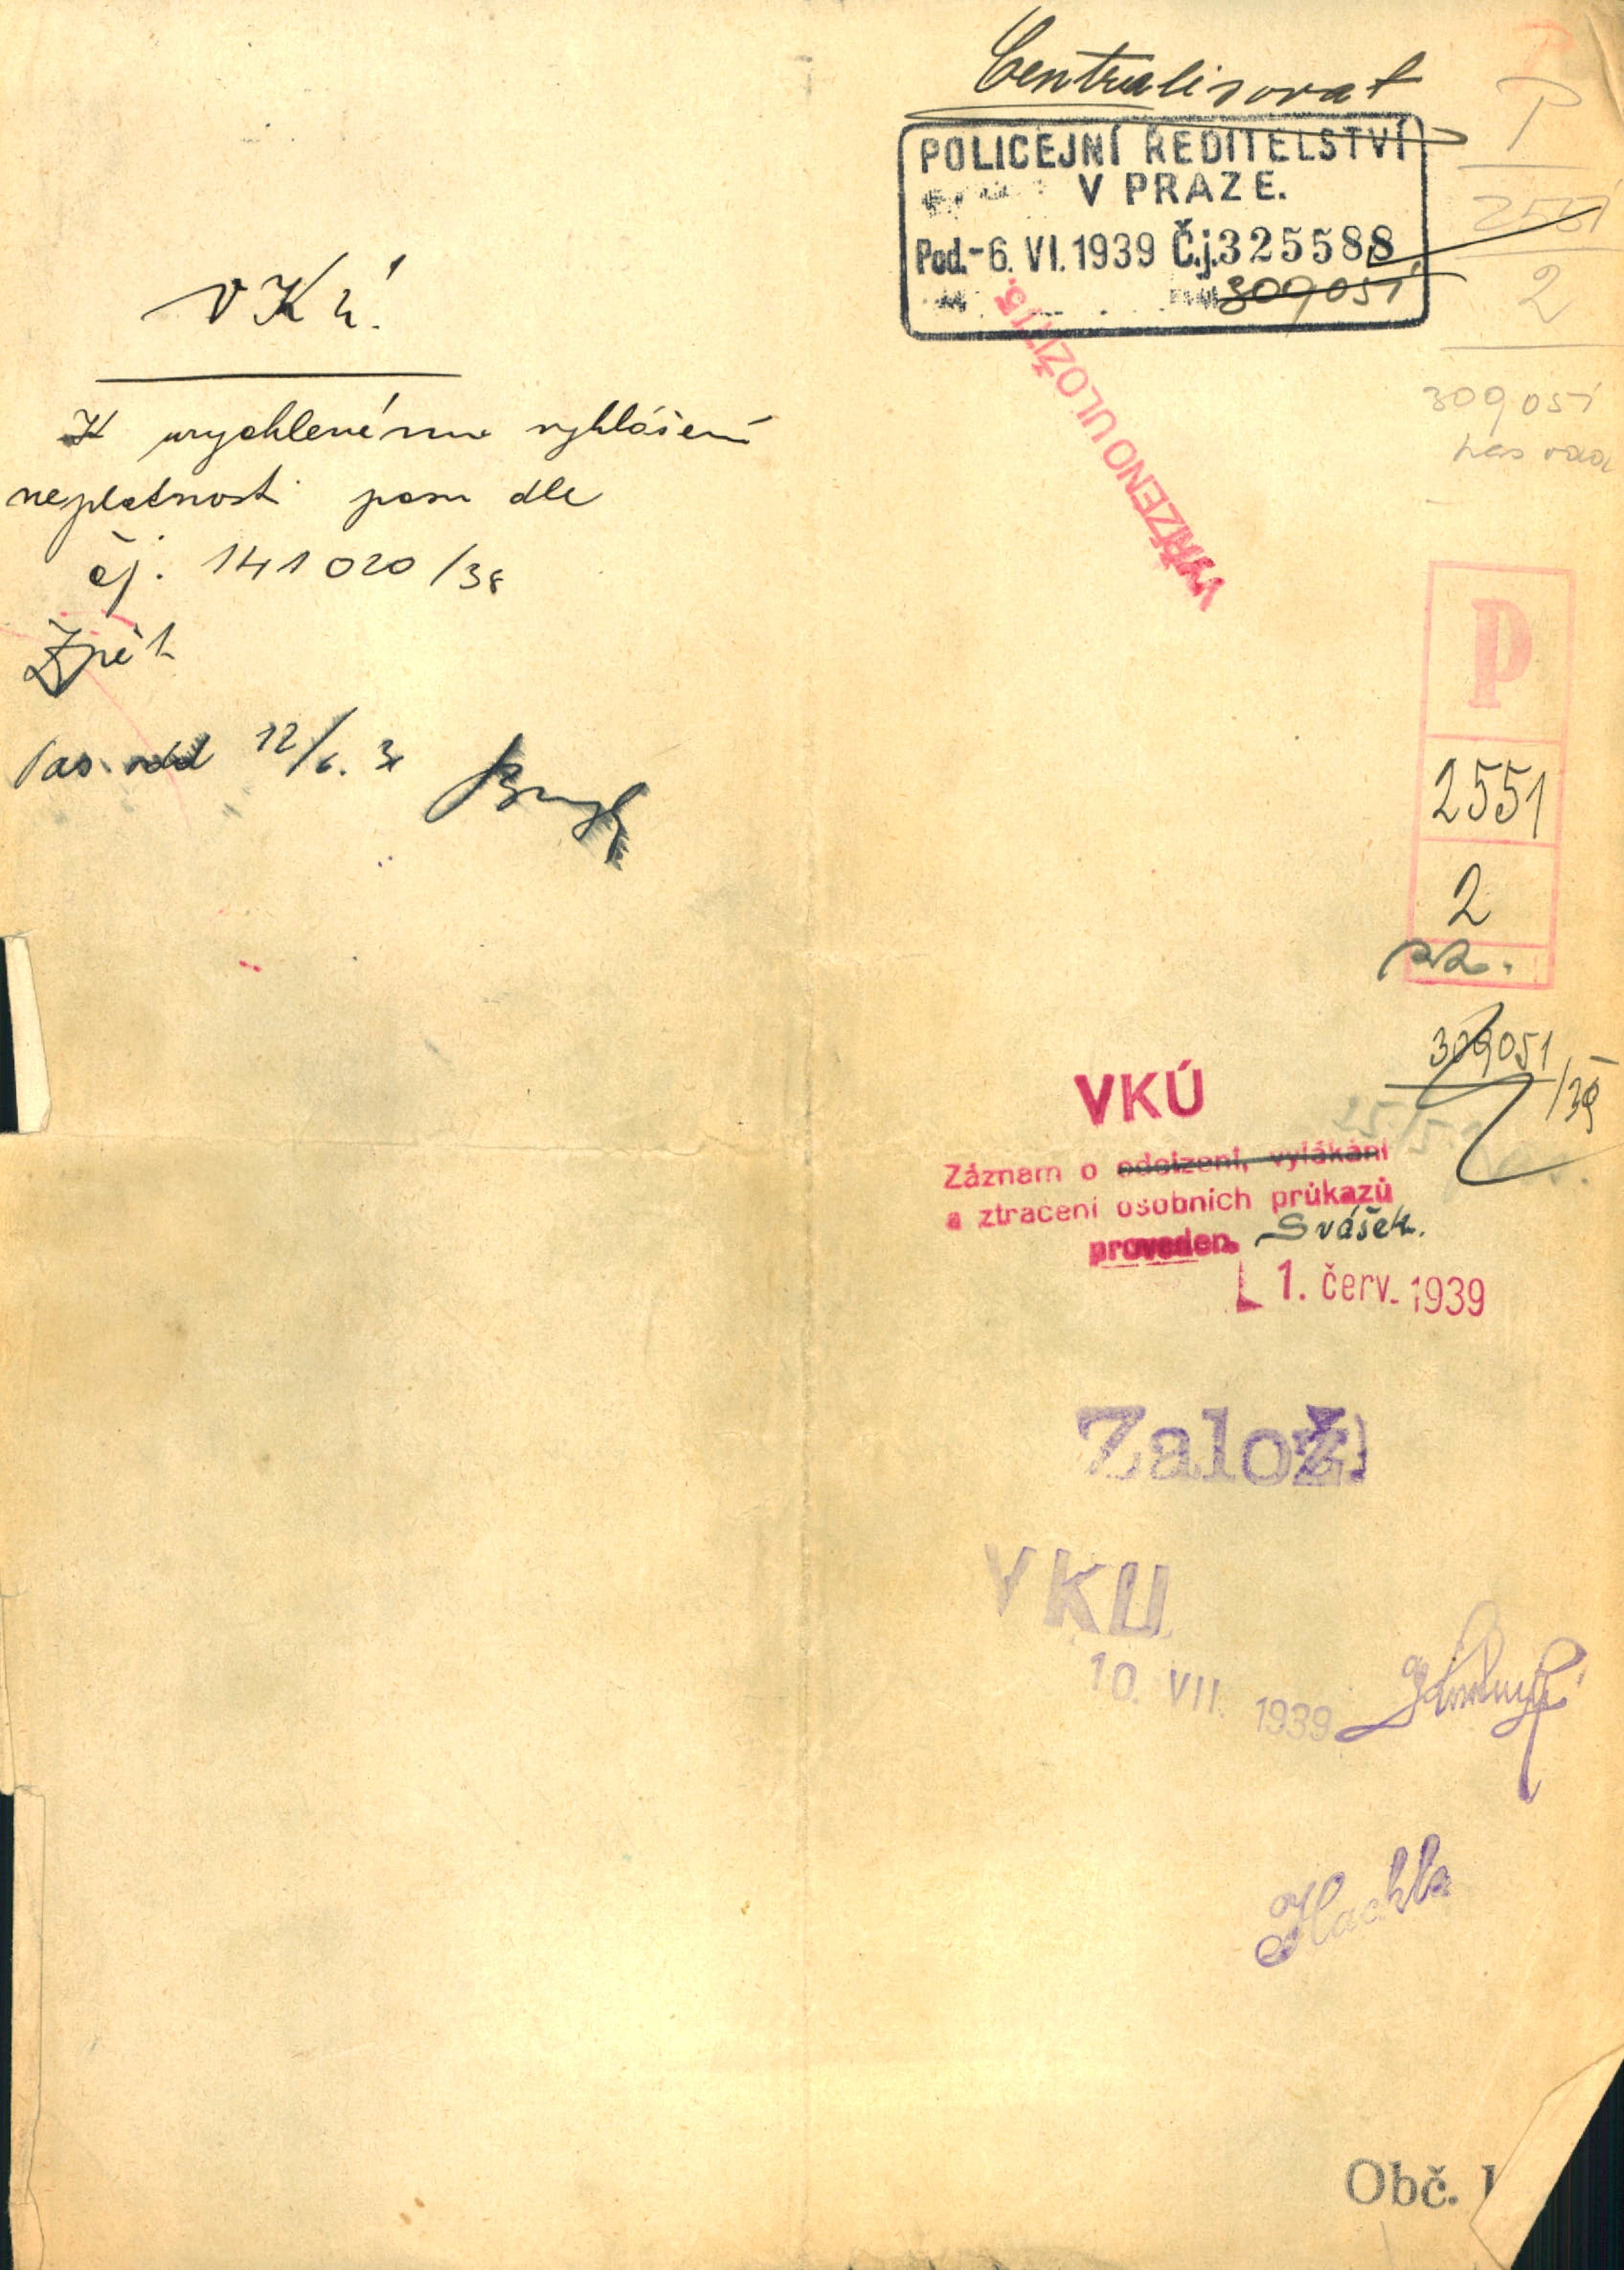 Centralisovat
POLICEJNÍ ŘEDITELSTVÍ
V PRAZE.
Pod. -6. VI. 1939 Č.j. 325588
309051
P
2551
2
309051
VYŘÍZENO ULOŽITI
VKÚ
K urychlenému vyhlášení
neplatnosti pasu dle
čj. 141020/38
Zpět
12/6. 39
P
2551
2
309051/39
VKÚ
Záznam o odcizení, vylákání
a ztracení osobních průkazů
proveden. Svášek.
1. červ. 1939
Založ
VKU
10. VII. 1939
Hachla
Obč.